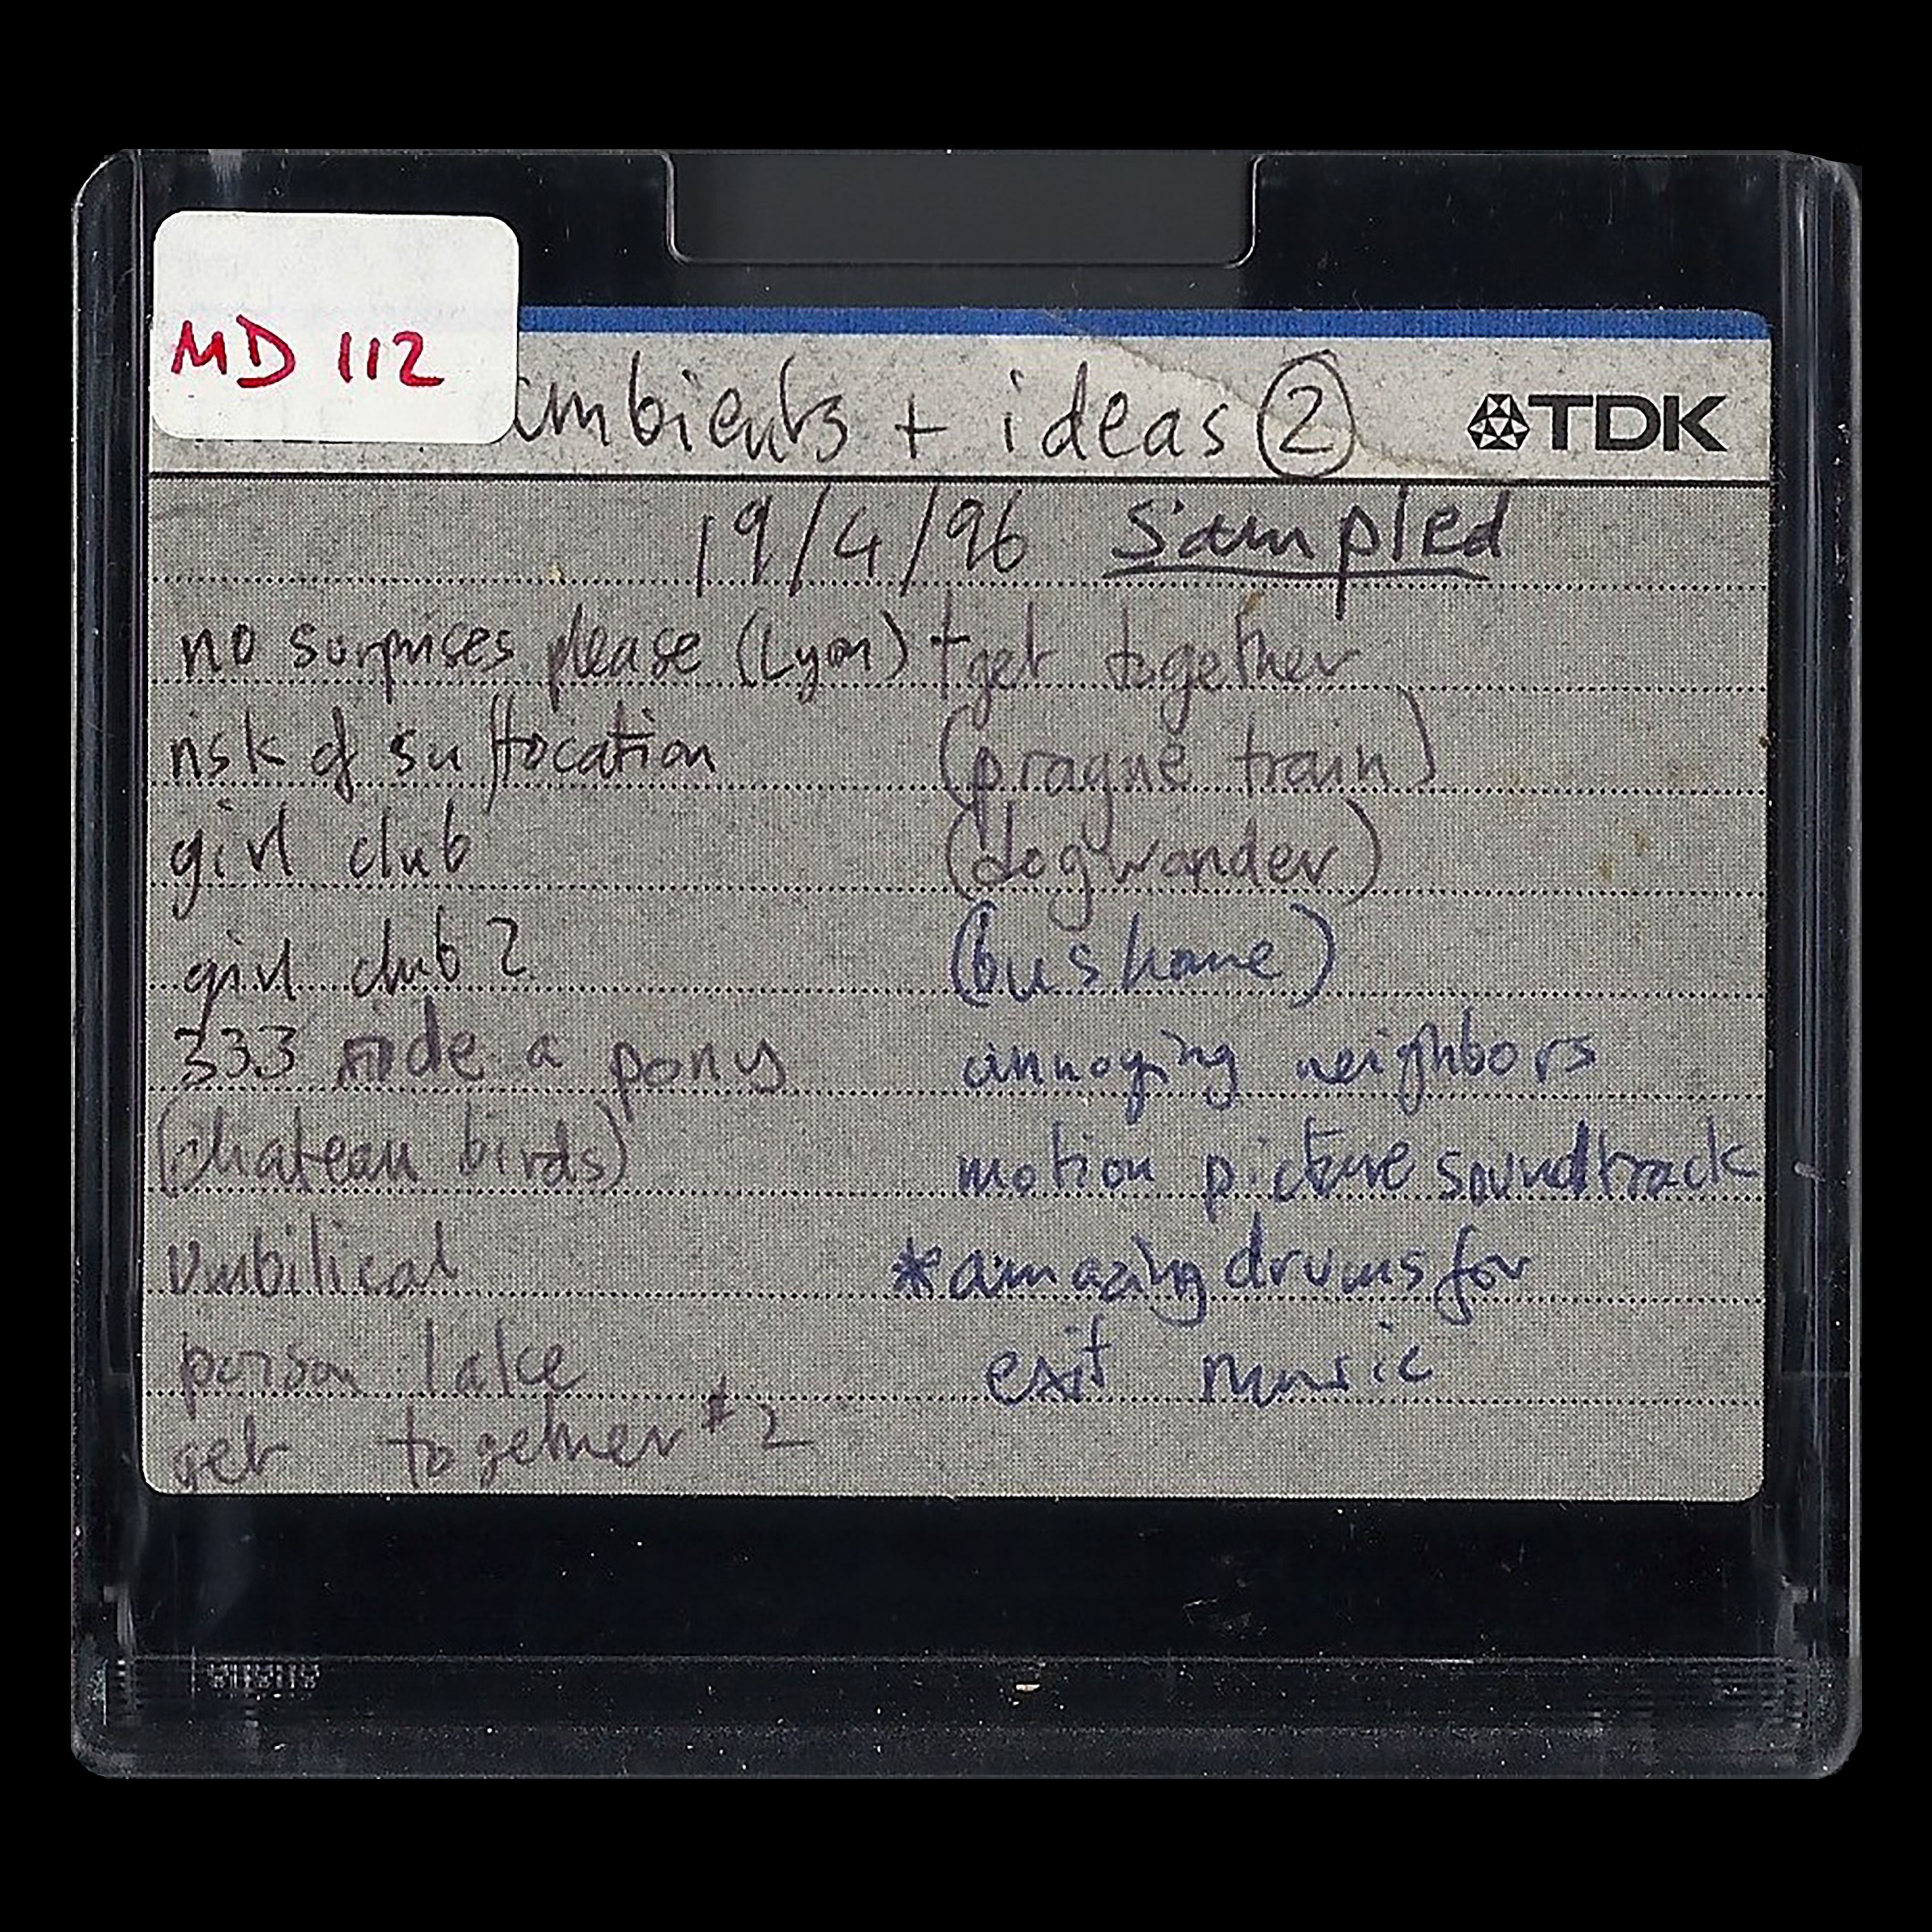 MD 112
ambients + ideas 2
TDK
19/4/96 sampled
no surprises please (Lyon)
risk of suffocation
girl club
girl club 2
333 ride a pony
(chateau birds)
Umbilical
poison lake
get together #2
+ get together
(prague train)
(dog wander)
(bus home)
annoying neighbors
motion picture soundtrack
*amazing drums for
exit music